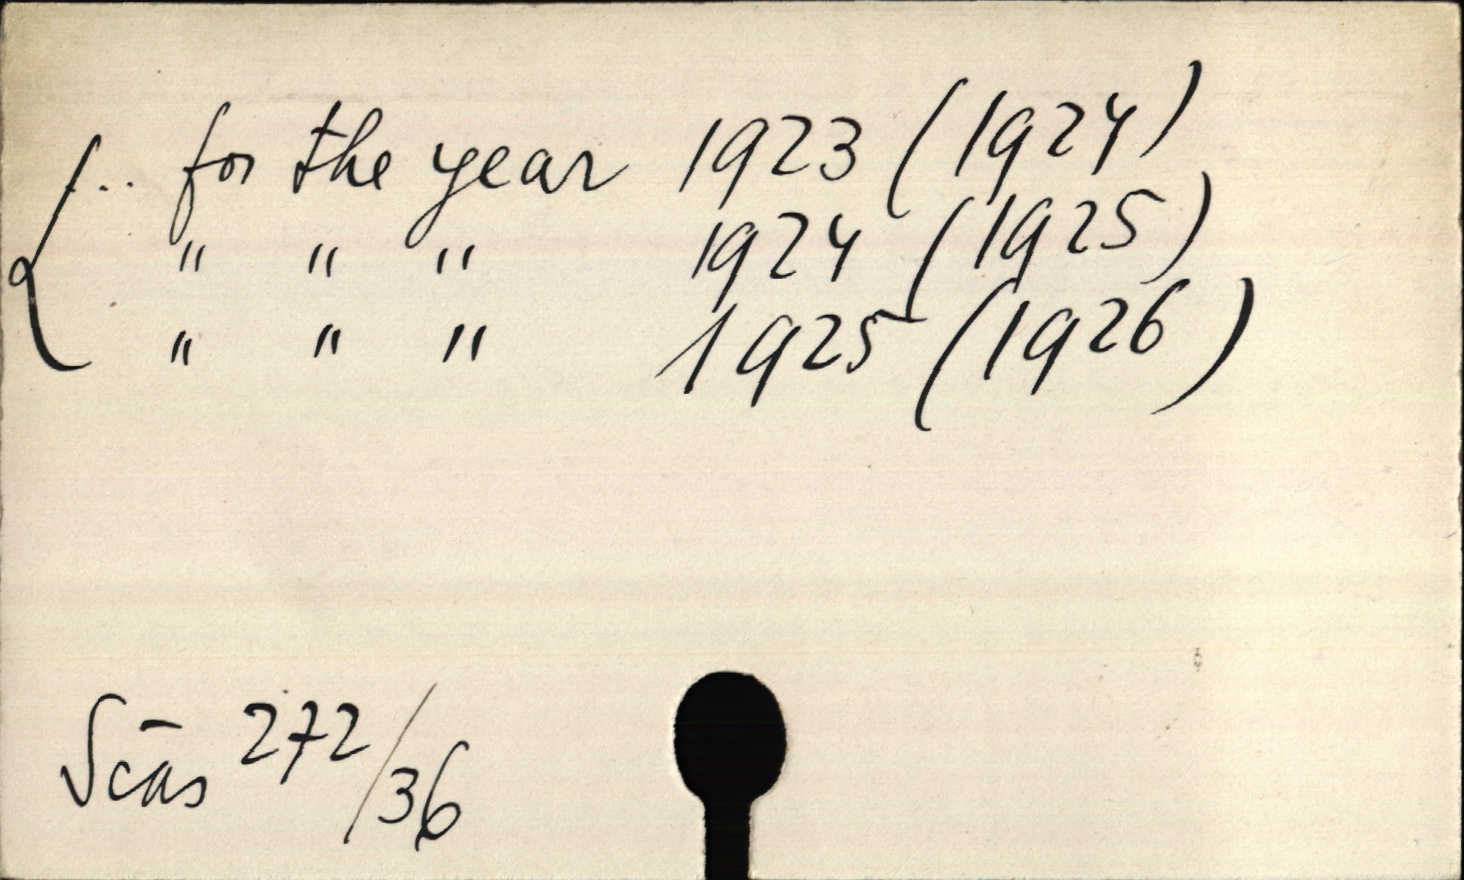 ... for the year 1923 (1924)
" " " 1924 (1925)
" " " 1925 (1926)
272/36